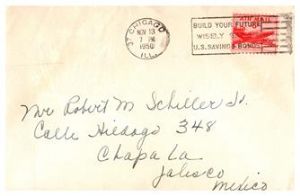 CHICAGO
NOV 13
7 PM
1950
ILL.
BUILD YOUR FUTURE
WISELY
U.S. SAVINGS BONDS
AIR MAIL
Mr Robert M Schiller Jr.
Calle Hidago 348
Chapa La
Jalisco
Mexico